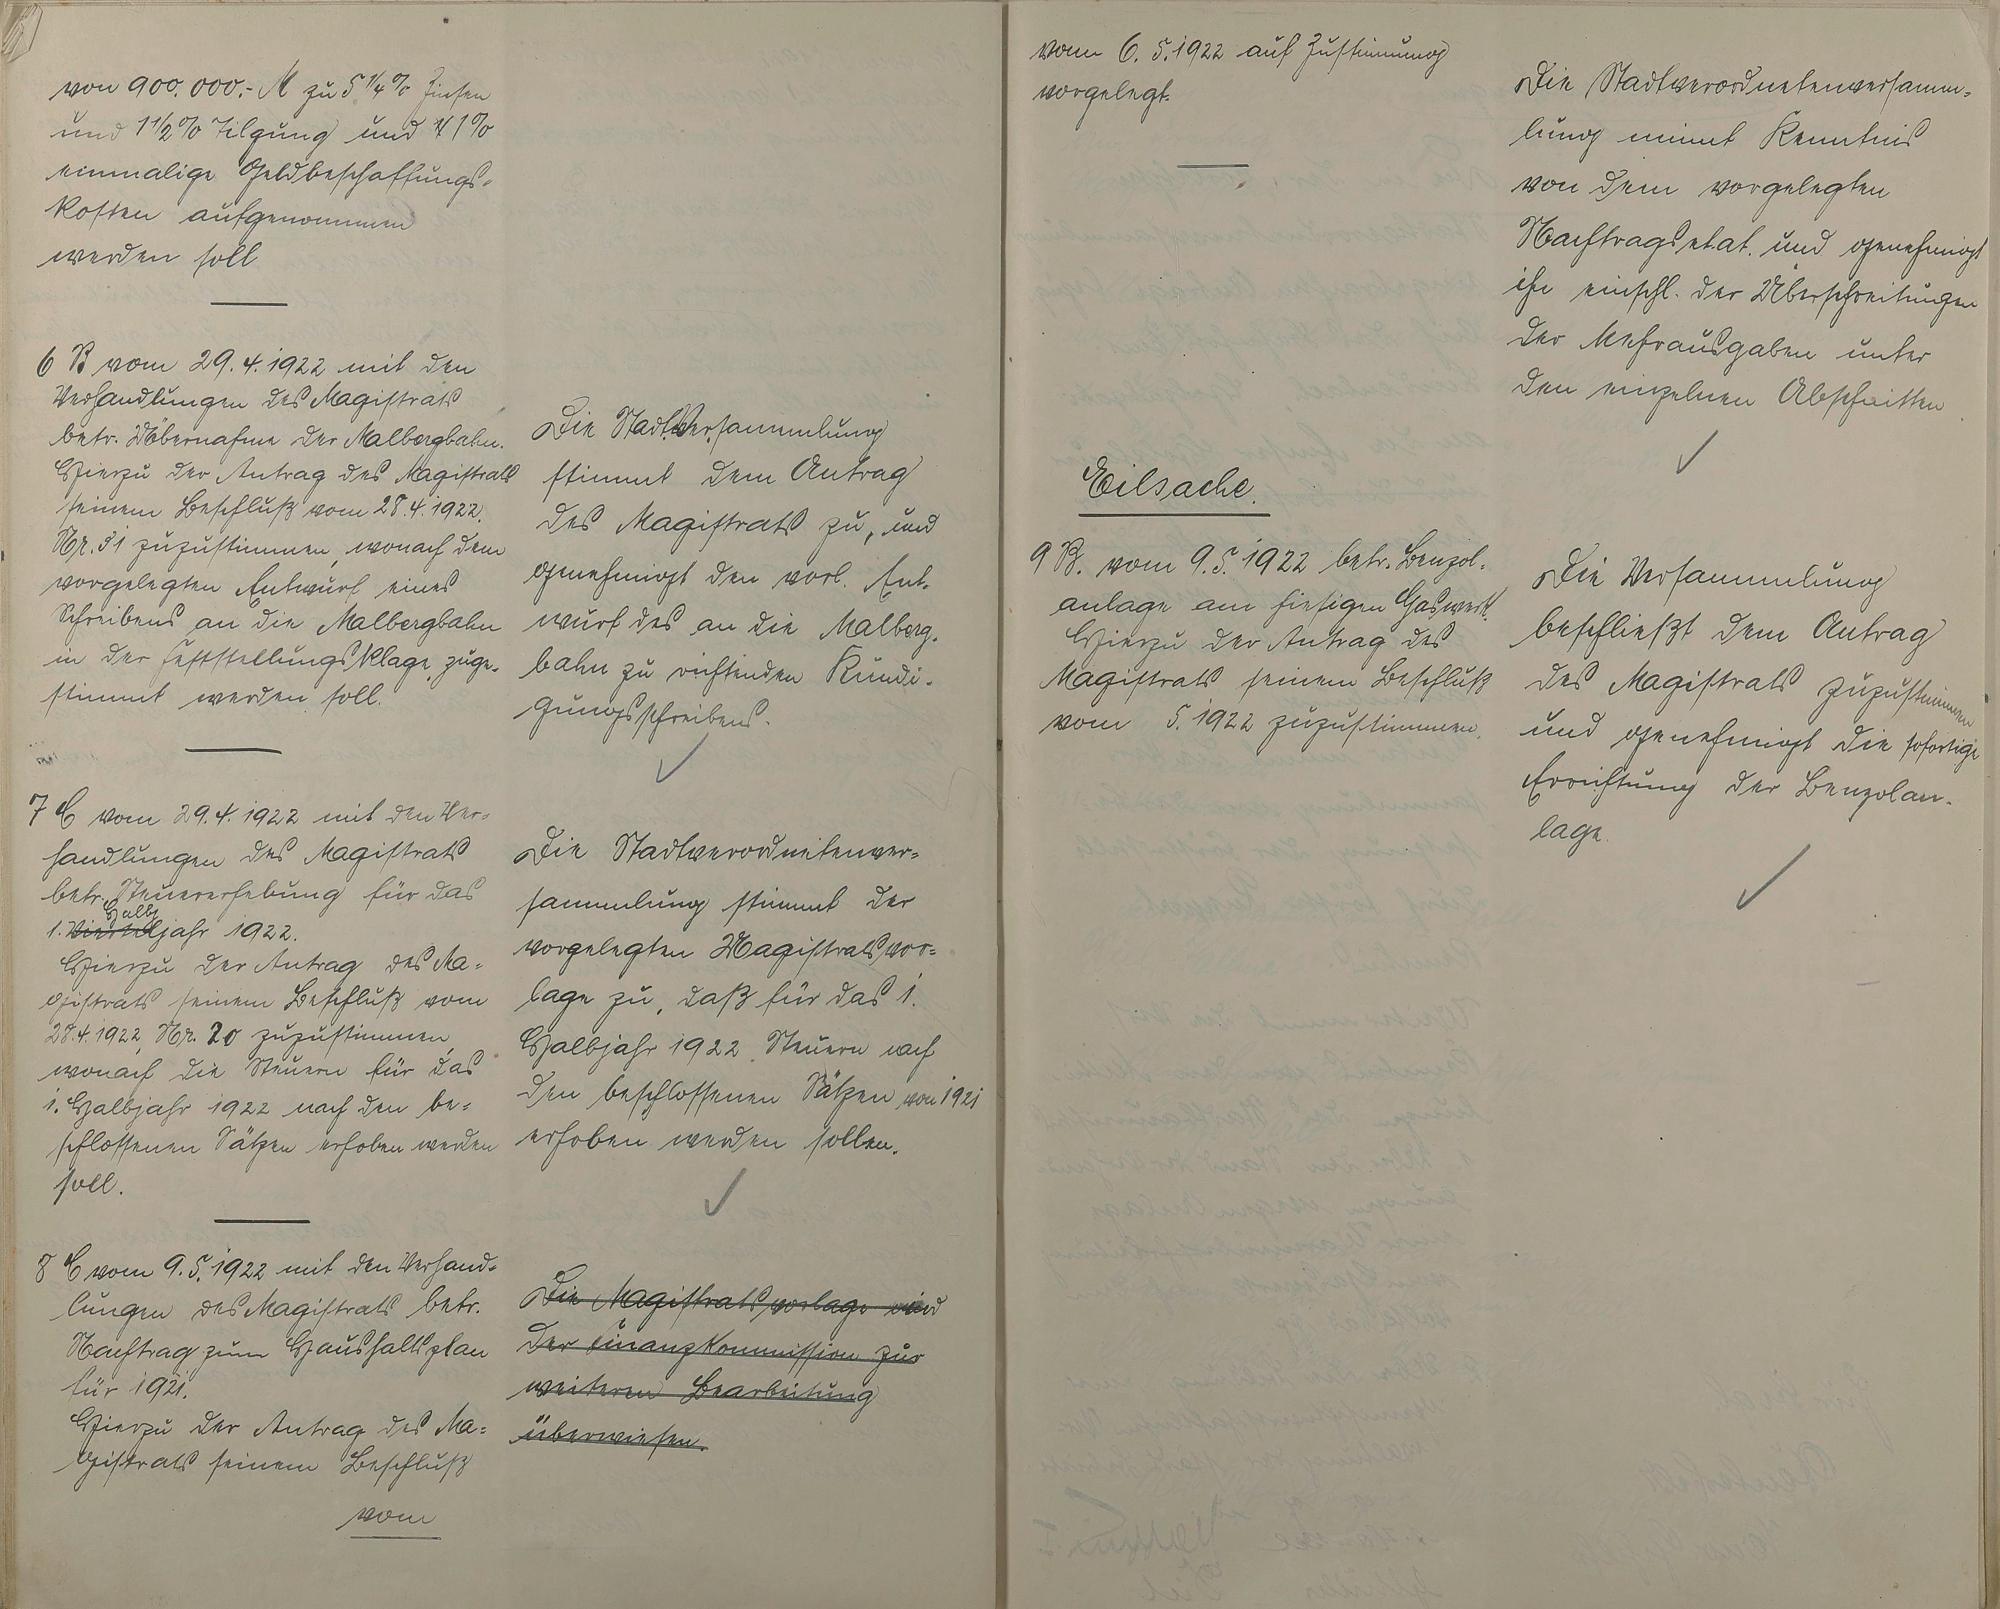 von 900.000.- M zu 5 1/4 % Zinsen
und 1 1/2 % Tilgung und 1 %
einmalige Geldbeschaffungs-
kosten aufgenommen
werden soll
6 B vom 29.4.1922 mit den
Verhandlungen des Magistrats
betr. Übernahme der Malbergbahn.
Hierzu der Antrag des Magistrats
seinem Beschluß vom 28.4.1922.
Nr. 31 zuzustimmen, wonach dem
vorgelegten Entwurf eines
Schreibens an die Malbergbahn
in der Feststellungsklage zuge-
stimmt werden soll.
Die Stadt.Versammlung
stimmt dem Antrag
des Magistrats zu, und
genehmigt den vorl. Ent-
wurf des an die Malberg-
bahn zu richtenden Kündi-
gungsschreibens.
7 C vom 29.4.1922 mit den Ver-
handlungen des Magistrats
betr. Steuererhebung für das
Halb
1. Vierteljahr 1922.
Hierzu der Antrag des Ma-
gistrats seinem Beschluß vom
28.4.1922 Nr. 20 zuzustimmen
wonach die Steuern für das
1. Halbjahr 1922 nach den be-
schlossenen Sätzen erhoben werden
soll.
Die Stadtverordnetenver-
sammlung stimmt der
vorgelegten Magistratsvor-
lage zu, daß für das 1.
Halbjahr 1922 Steuern nach
den beschlossenen Sätzen von 1921
erhoben werden sollen.
8 C vom 9.5.1922 mit den Verhand-
lungen des Magistrats betr.
Nachtrag zum Haushaltsplan
für 1921.
Hierzu der Antrag des Ma-
gistrats seinem Beschluß
vom
Die Magistratsvorlage wird
der Finanzkommission zur
weiteren Bearbeitung
überwiesen.
vom 6.5.1922 auf Zustimmung
vorgelegt.
Die Stadtverordnetenversamm-
lung nimmt Kenntnis
von dem vorgelegten
Nachtragsetat und genehmigt
ihn einschl. der Überschreitungen
der Mehrausgaben unter
den einzelnen Abschnitten
Eilsache.
9 B. vom 9.5.1922 betr. Benzol-
anlage am hiesigen Gaswerk.
Hierzu der Antrag des
Magistrats seinem Beschluß
vom 5.1922 zuzustimmen.
Die Versammlung
beschließt dem Antrag
des Magistrats zuzustimmen
und genehmigt die sofortige
Errichtung der Benzolan-
lage.